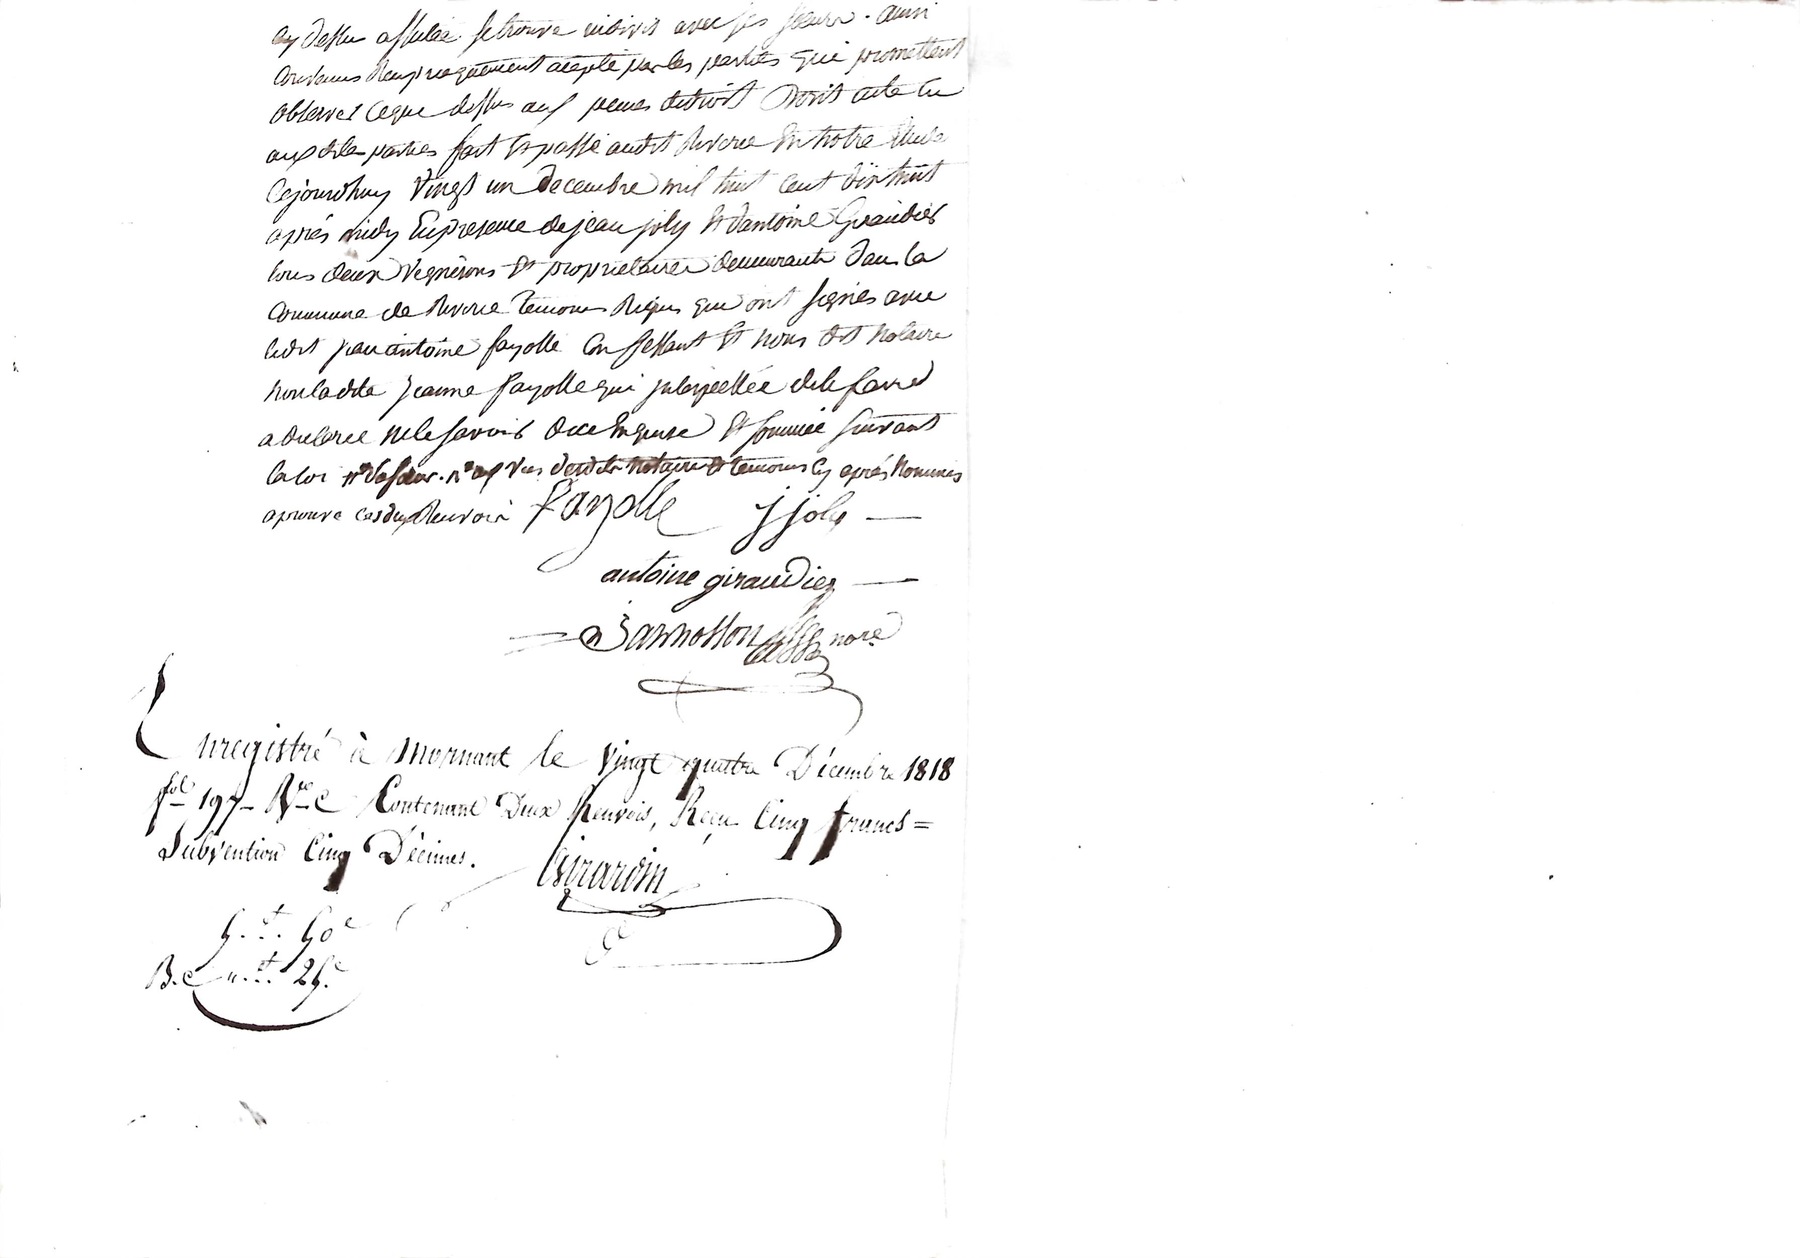 cy dessu assulée se trouve indivis avec ses soeurs. ainsi
convenus Reciproquement accepté par les parties qui promettent
observer ce que dessus aux peines de droit Dont acte lu
aux dites parties fait et passé audit Riverie En notre Etude
Cejourdhuy Vingt un decembre mil huit cent dix huit
après midy En presence de jean joly et d'antoine Giraudier
tous deux Vignerons et proprietaires demeurants dans la
Commune de Riverie temoins Requis qui ont signés avec
ledit jean antoine fayolle Confessant et nous dit Notaire
non ladite jeanne fayolle qui interpellée de le faire
a declaree ne le savoir de ce Enquise et sommée suivant
la loi aux Vues desdits notaire et temoins cy après Nommés
aprouvé Renvois Fayolle j joly
antoine giraudier
nore
Enregistré à Mornant le Vingt quatre Décembre 1818
fol 197 Rto C Contenant Deux Renvois, Reçu Cinq francs =
Subvention Cinq Décimes. Girardin
5.f. 50c
B.c ".f. 25c